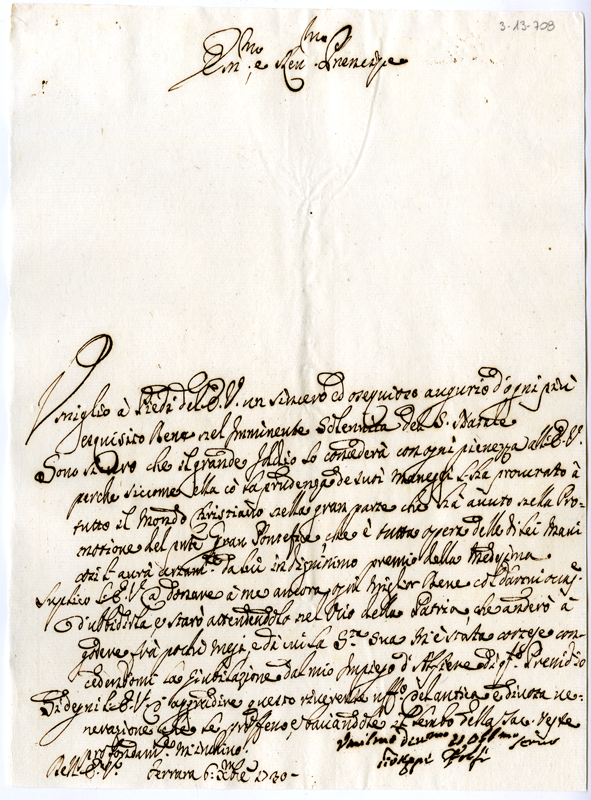 3-13-708
Em.mo e Rev.mo Prencipe
Umiglio à Piedi dell'E.V. un sincero ed osequioso augurio d'ogni più
esquisito Bene nel Imminente Solennità del S. Natale
Sono sicuro che il grande Iddio lo concederà con ogni pienezza all'E.V.
perché siccome ella cò la prudenza de suoi maneggi l'ha procurato à
tutto il Mondo Christiano nella gran parte che hà avuto nella Pro-
motione del Gran Pontefice che è tutta opera delle di lei Mani
così l'aurà da lui premio della Medesima
Suplico l'E.V. donare à me ancora ogni miglior Bene col darmi
d'ubbidirla e starò attendendolo nel Ozio della Patria, che anderò à
godere frà pochi mesi, e di cui la S.tà Sua m'è stata cortese con-
cedendomi la Giubilazione dal mio Impiego d'Alfiere di q.to Presidio
Si degni l'E.V. aggradire questo riverente uff.o del antica e divota ve-
nerazione che le professo, e baciandole il Lembo della Sac. Veste
profondam.te m'inchino.
Dell'E.V.
Ferrara 6: Xbre 1730
Umilmo Divmo ed Obbmo Servo
Giuseppe